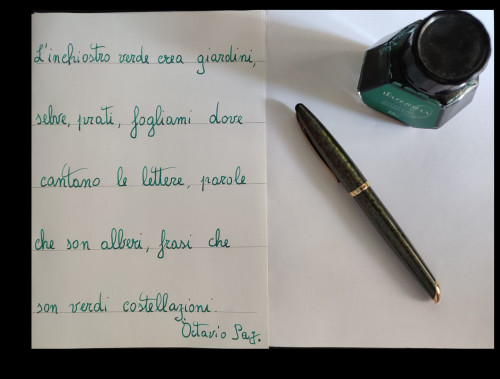 L'inchiostro verde crea giardini,
selve, prati, fogliami dove
cantano le lettere, parole
che son alberi, frasi che
son verdi costellazioni.
Octavio Paz.